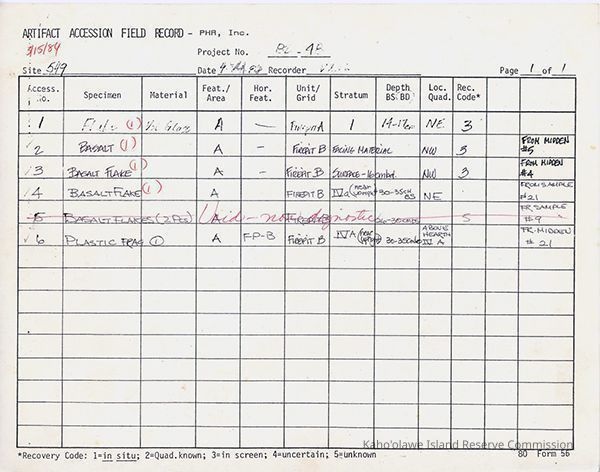 ARTIFACT ACCESSION FIELD RECORD - PHR, Inc.
3/15/84
Project No.
Site 549 Date Recorder Page 1 of 1
Access. No. Specimen Material Feat./Area Hor. Feat. Unit/Grid Stratum Depth BS:BD Loc. Quad. Rec. Code*
1 Flake (1) Vol Glass A — Firepit A 1 14-17cm NE 3
2 BASALT (1) A — FIREPIT B FACING MATERIAL NW 3 FROM MIDDEN #5
3 BASALT FLAKE (1) A — FIREPIT B SURFACE-16cmbd NW 3 FROM MIDDEN #4
4 BASALT FLAKE (1) A FIREPIT B IVa 30-35cm BS NE FROM SAMPLE #21
5 BASALT FLAKES (2 PCS) Void - not diagnostic 5 FR. SAMPLE #9
6 PLASTIC FRAG (1) A FP-B FIREPIT B IVA 30-35cm ABOVE HEARTH IV A FR. MIDDEN # 21
Kaho'olawe Island Reserve Commission
*Recovery Code: 1=in situ; 2=Quad.known; 3=in screen; 4=uncertain; 5=unknown 80 Form 56